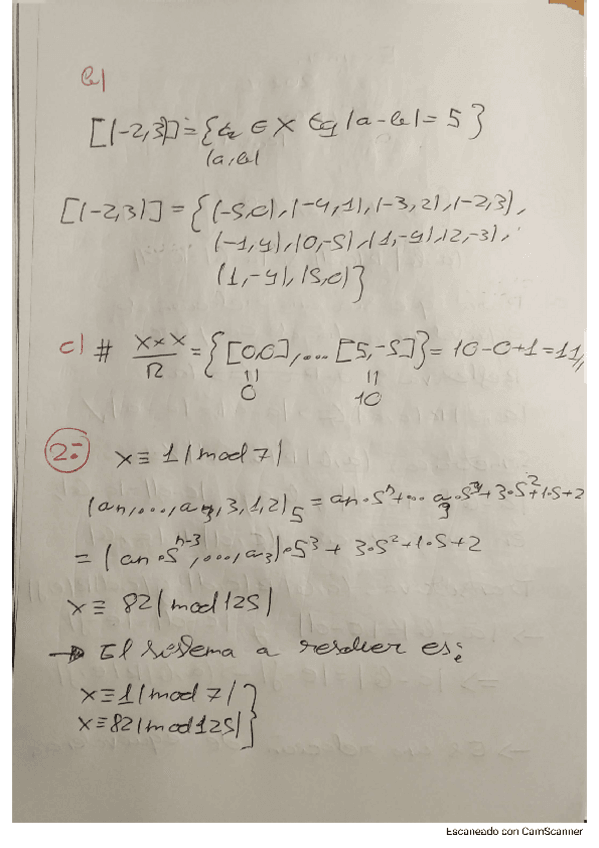 b)
[(-2,3)] = {z ∈ X tq |a-b| = 5}
(a,b)
[(-2,3)] = {(-5,0), (-4,1), (-3,2), (-2,3),
(-1,4), (0,-5), (1,-4), (2,-3),
(1,-4), (5,0)}
c) # X×X/R = {[0,0], ... [5,-5]} = 10-0+1 = 11,
" "
0 10
2:- x ≡ 1 (mod 7)
(an, ..., a3, 3, 1, 2)5 = an·5^n + ... a3·5^3 + 3·5^2 + 1·5 + 2
= (an·5^n-3, ..., a3)·5^3 + 3·5^2 + 1·5 + 2
x ≡ 82 (mod 125)
→ El sistema a resolver es:
x ≡ 1 (mod 7)
x ≡ 82 (mod 125) }
Escaneado con CamScanner